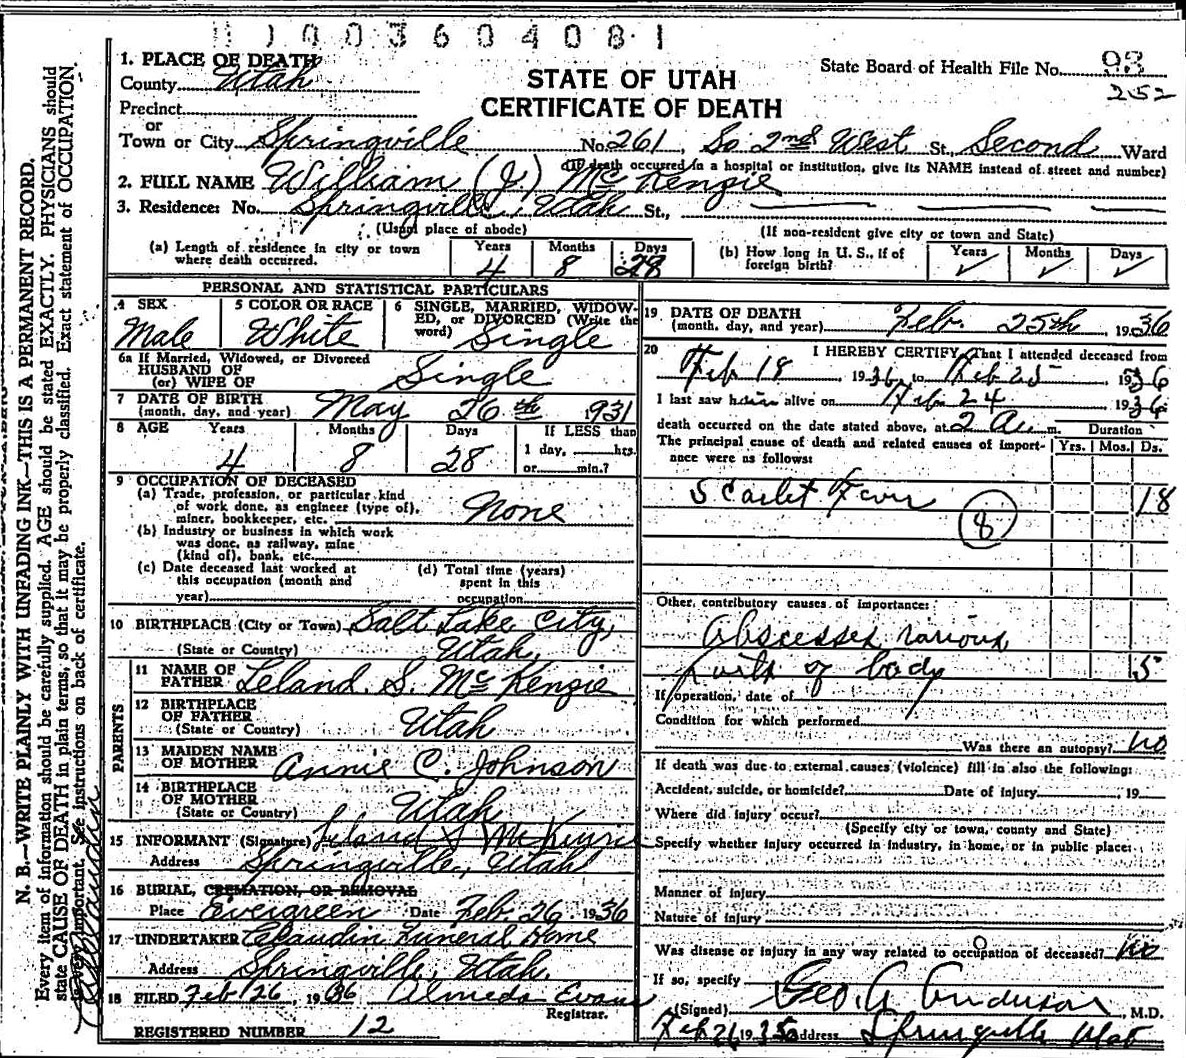 003604081
1. PLACE OF DEATH
County Utah
Precinct
or
Town or City Springville No. 261, So 2nd West St, Second Ward
STATE OF UTAH
CERTIFICATE OF DEATH
State Board of Health File No. 93
252
(If death occurred in a hospital or institution, give its NAME instead of street and number)
2. FULL NAME William (J) McKenzie
3. Residence: No. Springville, Utah St.,
(Usual place of abode) (If non-resident give city or town and State)
(a) Length of residence in city or town where death occurred. Years 4 Months 8 Days 28
(b) How long in U. S., if of foreign birth? Years ✓ Months ✓ Days ✓
PERSONAL AND STATISTICAL PARTICULARS
4 SEX Male
5 COLOR OR RACE White
6 SINGLE, MARRIED, WIDOWED, or DIVORCED (Write the word) Single
6a If Married, Widowed, or Divorced
HUSBAND OF
(or) WIFE OF Single
7 DATE OF BIRTH
(month, day, and year) May 26th 1931
8 AGE Years 4 Months 8 Days 28
If LESS than
1 day, ____hrs.
or ____min.?
9 OCCUPATION OF DECEASED
(a) Trade, profession, or particular kind
of work done, as engineer (type of),
miner, bookkeeper, etc. None
(b) Industry or business in which work
was done, as railway, mine
(kind of), bank, etc.
(c) Date deceased last worked at
this occupation (month and
year)
(d) Total time (years)
spent in this
occupation
10 BIRTHPLACE (City or Town) Salt Lake City,
(State or Country) Utah.
PARENTS
11 NAME OF
FATHER Leland. S. McKenzie
12 BIRTHPLACE
OF FATHER
(State or Country) Utah
13 MAIDEN NAME
OF MOTHER Annie C. Johnson
14 BIRTHPLACE
OF MOTHER
(State or Country) Utah
15 INFORMANT (Signature) Leland S McKenzie
Address Springville, Utah
16 BURIAL, CREMATION, OR REMOVAL
Place Evergreen Date Feb. 26, 1936
17 UNDERTAKER Claudin Funeral Home
Address Springville, Utah.
18 FILED Feb 26, 1936 Almeda Evans
Registrar.
REGISTERED NUMBER 12
19 DATE OF DEATH
(month, day, and year) Feb. 25th, 1936
20 I HEREBY CERTIFY, That I attended deceased from
Feb 18 1936, to Feb 25 1936
I last saw him alive on Feb 24 1936
death occurred on the date stated above, at 2 A m.
Duration
The principal cause of death and related causes of importance were as follows:
Yrs. Mos. Ds.
Scarlet Fever 18
8
Other contributory causes of importance:
Abscesses various
parts of body 5
If operation, date of
Condition for which performed
Was there an autopsy? no
If death was due to external causes (violence) fill in also the following:
Accident, suicide, or homicide? Date of injury 19
Where did injury occur?
(Specify city or town, county and State)
Specify whether injury occurred in industry, in home, or in public place:
Manner of injury
Nature of injury
Was disease or injury in any way related to occupation of deceased? no
If so, specify
(Signed) Geo. A Anderson, M.D.
Feb 26 1936 Address Springville Utah
N. B.—WRITE PLAINLY WITH UNFADING INK—THIS IS A PERMANENT RECORD.
Every item of information should be carefully supplied. AGE should be stated EXACTLY. PHYSICIANS should
state CAUSE OF DEATH in plain terms, so that it may be properly classified. Exact statement of OCCUPATION
is very important. See instructions on back of certificate.